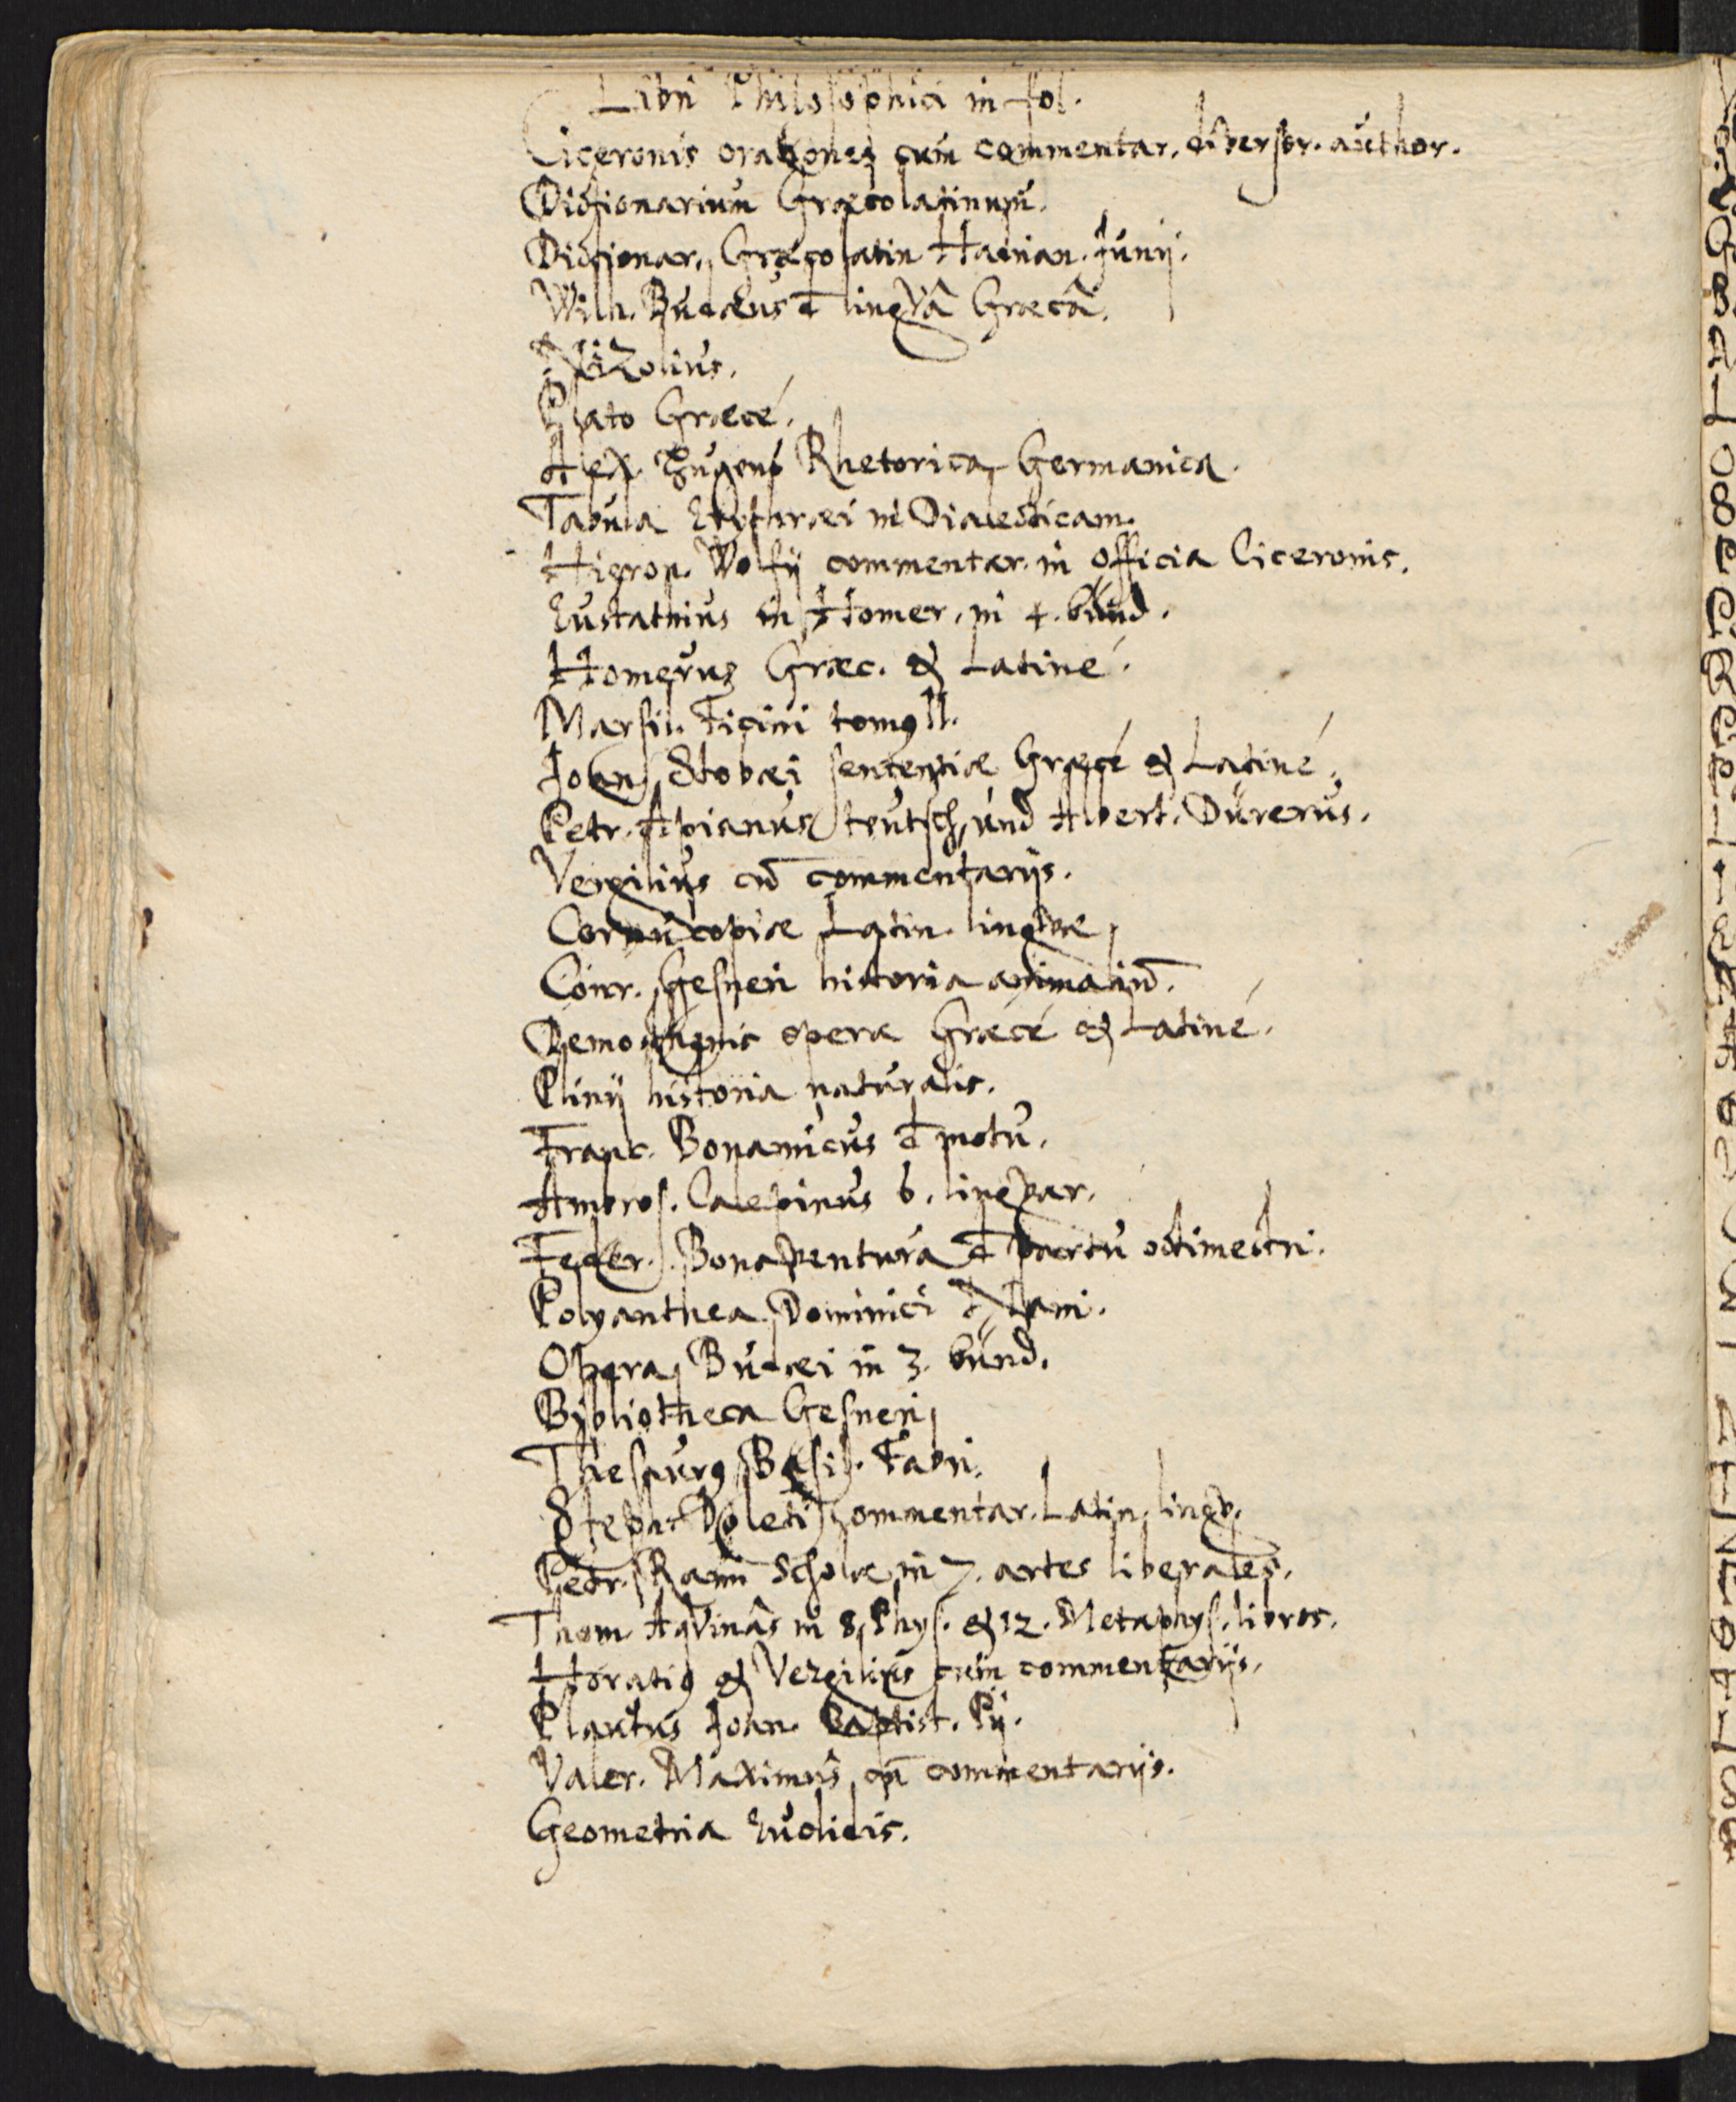 Libri Philosophici in fol.
Ciceronis orationes cum commentar. diversor. author.
Dictionarium Græcolatinum.
Dictionar. Græcolatin Hadrian. Junij.
Wilh. Budæus d̄ lingvâ Græcâ.
Nizolius.
Plato Græcé.
Alex. Hugens Rhetorica Germanica.
Tabula in Dialecticam.
Hieron. Wolfij commentar. in officia Ciceronis.
Eustathius in Homer. in 4. bünd.
Homerus Græc. & Latiné.
Marsil. Ficini tomus II.
Joan. Stobæi sententiæ Græcé & Latiné.
Petr. Apianus teutsch, und Albert. Dürerus.
Vergilius cū commentarijs.
Cornucopiæ Latin. lingvæ
Conr. Gesneri historia animaliū.
Demosthenis opera Græcé & Latiné.
Plinij historia naturalis.
Franc. Bonamicus d̄ motu.
Ambros. Calepinus 6. lingvar.
Feder. Bonaventura d̄ partu octimestri.
Polyanthea Dominici Nani.
Opera Budæi in 3. bünd.
Bibliotheca Gesneri
Thesaurus Basil. Fabri.
Stephan. Doleti commentar. Latin. lingv.
Petr. Rami Scholæ in 7. artes liberales.
Thom. Aqvinas in 8. Phys. & 12. Metaphys. libros.
Horatius & Vergilius cum commentarijs.
Plautus Joan. Baptist. Pij.
Valer. Maximus cū commentarijs.
Geometria Euclidis.